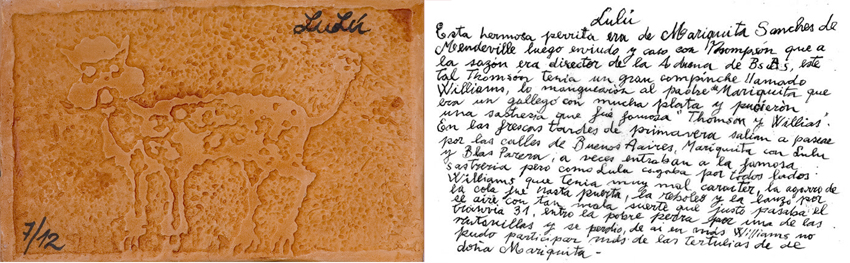 LuLú
7/12
Lulú
Esta hermosa perrita era de Mariquita Sanches de
Mendeville luego enviudo y caso con Thompson que a
la sazón era director de la Aduana de BsAs, este
tal Thomson tenia un gran compinche llamado
Williams, lo manguearon al padre de Mariquita que
era un gallego con mucha plata y pusieron
una sastreria que fué famosa "Thomson y Willias".
En las frescas tardes de primavera salian a pasear
por las calles de Buenos Aaires, Mariquita con Lulu
y Blas Parera, a veces entraban a la famosa
sastreria pero como Lula cagaba por todos lados
Williams que tenia muy mal caracter, la agarro de
la cola fue hasta puerta, la reboleo y la lanzo por
el aire con tan mala suerte que justo pasaba el
tranvia 31, entro la pobre perra por una de las
ventanillas y se perdio, de ai en más Williams no
pudo participar más de las tertulias de de
doña Mariquita -